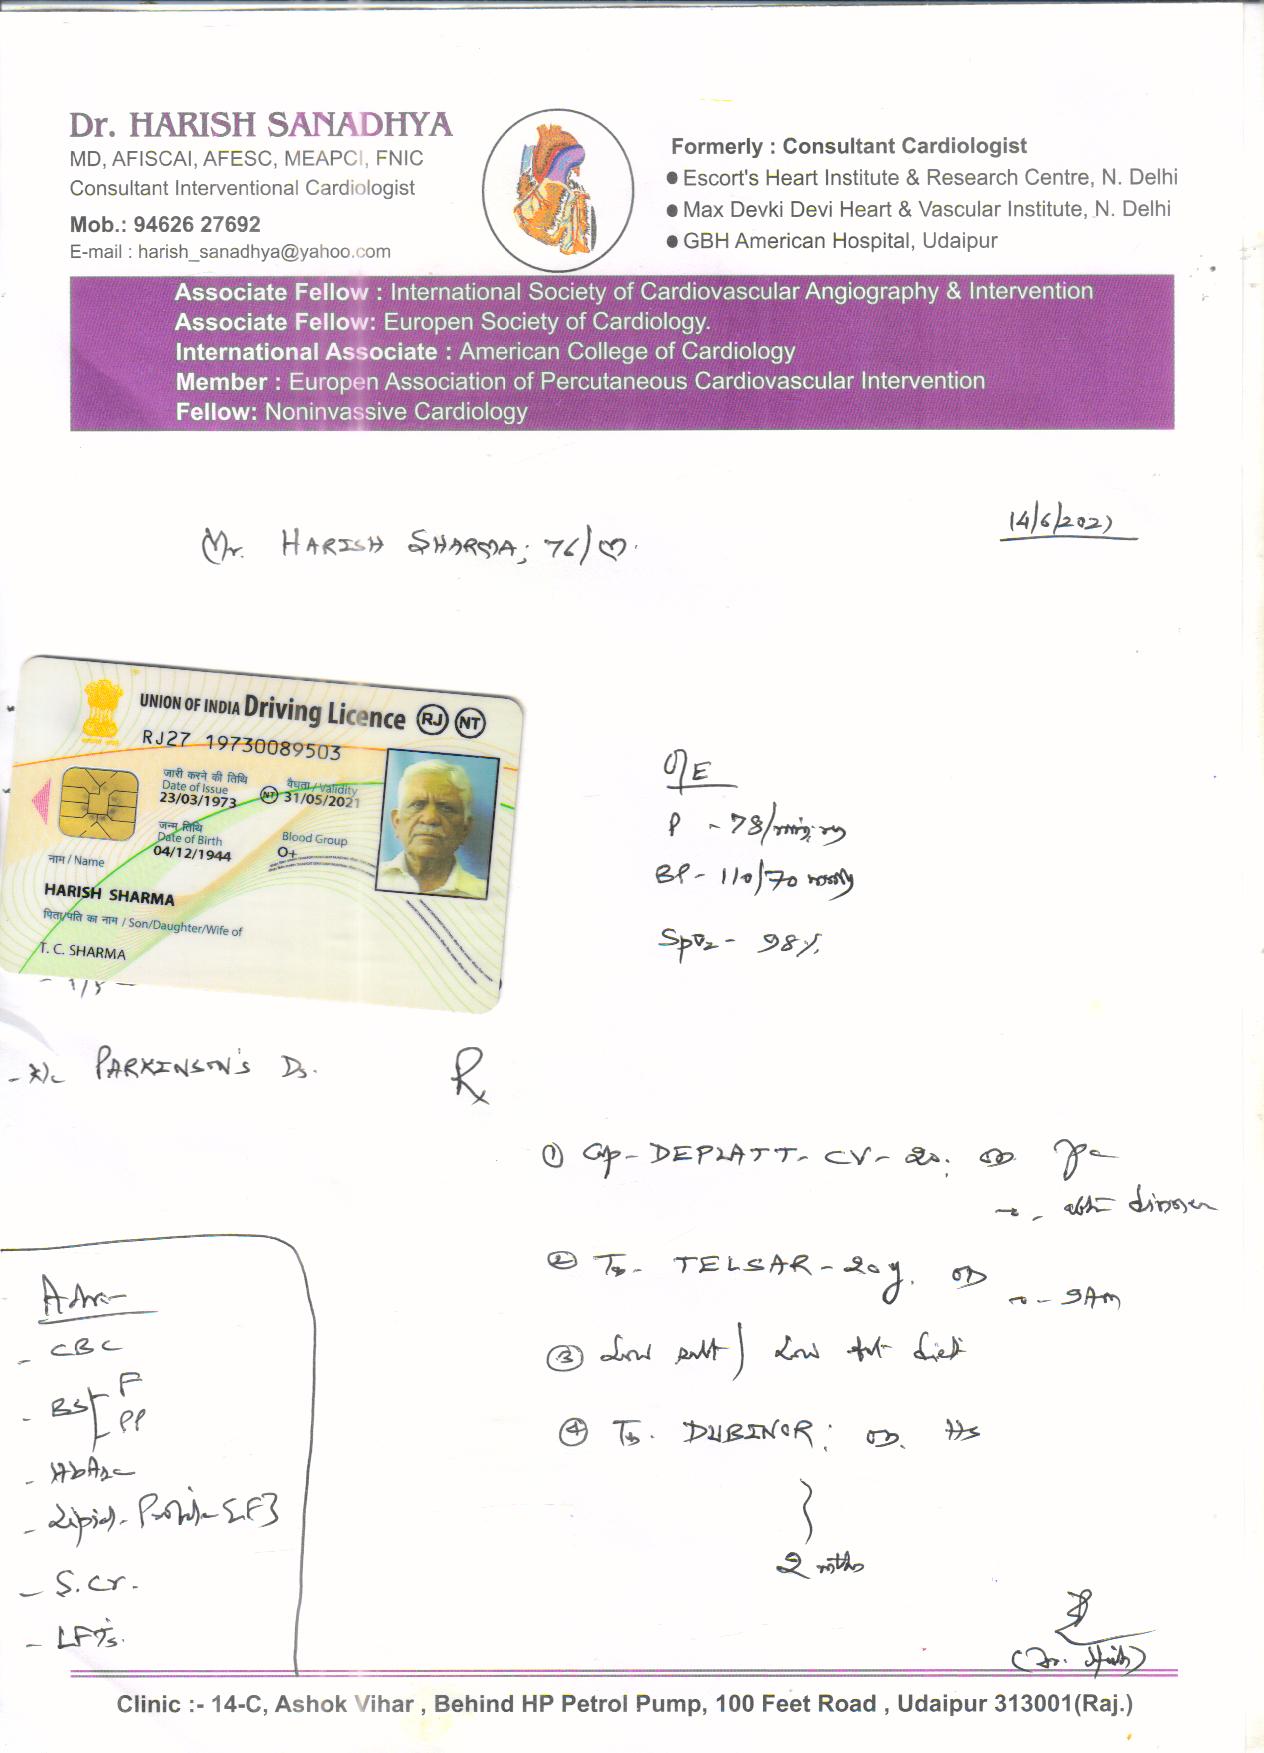 Dr. HARISH SANADHYA
MD, AFISCAI, AFESC, MEAPCI, FNIC
Consultant Interventional Cardiologist
Mob.: 94626 27692
E-mail : harish_sanadhya@yahoo.com
Formerly : Consultant Cardiologist
● Escort's Heart Institute & Research Centre, N. Delhi
● Max Devki Devi Heart & Vascular Institute, N. Delhi
● GBH American Hospital, Udaipur
Associate Fellow : International Society of Cardiovascular Angiography & Intervention
Associate Fellow: Europen Society of Cardiology.
International Associate : American College of Cardiology
Member : Europen Association of Percutaneous Cardiovascular Intervention
Fellow: Noninvassive Cardiology
14/6/202
Mr. HARISH SHARMA; 76/M.
UNION OF INDIA Driving Licence RJ NT
RJ27 19730089503
जारी करने की तिथि
Date of Issue
23/03/1973
वैधता / Validity
NT 31/05/2021
जन्म तिथि
Date of Birth
04/12/1944
Blood Group
O+
नाम / Name
HARISH SHARMA
पिता/पति का नाम / Son/Daughter/Wife of
T. C. SHARMA
O/E
P - 78/min
BP - 110/70 mmHg
SpO2 - 98%
- PARKINSON'S Ds.
Rx
① Cap - DEPLATT - CV - 20. OD
dinner
② Tb. TELSAR - 20 OD
- 9AM
③ Low salt / Low fat diet
④ Tb. DUBINOR: OD. HS
2 mths
Adv
- CBC
- BS F
PP
- HbA1c
- Lipid - Profile - {F}
- S. Cr.
- LFTs.
Clinic :- 14-C, Ashok Vihar , Behind HP Petrol Pump, 100 Feet Road , Udaipur 313001(Raj.)